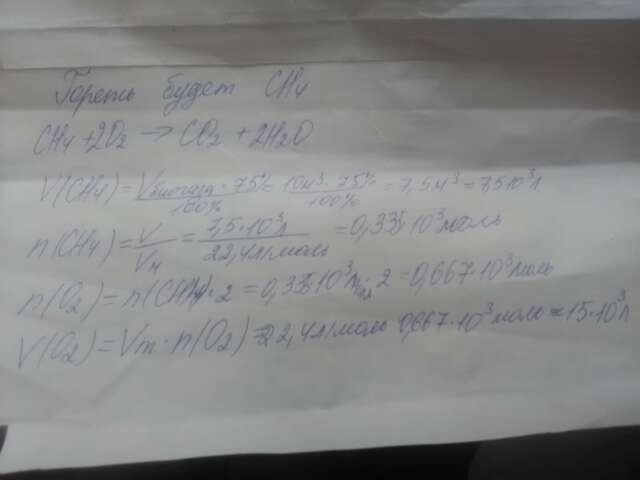 Гореть будет CH4
CH4 + 2O2 → CO2 + 2H2O
V(CH4) = Vбиогаза · 75% / 100% = 10м³ · 75% / 100% = 7,5 м³ = 7,5·10³ л
n(CH4) = V / Vм = 7,5·10³ л / 22,4 л/моль = 0,335·10³ моль
n(O2) = n(CH4)·2 = 0,335·10³ · 2 = 0,667·10³ моль
V(O2) = Vm · n(O2) = 22,4 л/моль 0,667·10³ моль = 15·10³ л